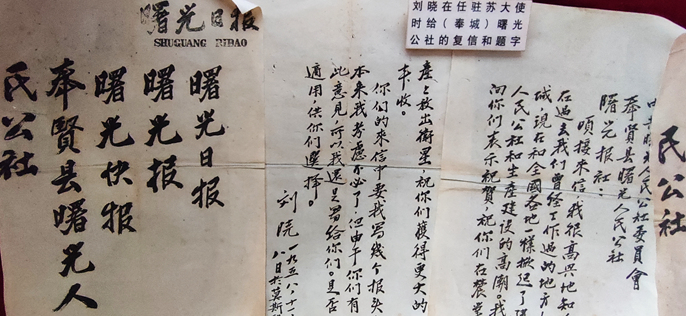 刘晓在任驻苏大使
时给(奉城)曙光
公社的复信和题字
曙光日报
SHUGUANG RIBAO
民公社
人民公社委員會
奉賢县曙光人民公社
曙光报社:
頃接来信,我很高兴地知
在过去我们曾经工作过的地方
城,现在和全國各地一樣掀起了
人民公社和生産建设的高潮。我
向你们表示祝賀,祝你们在農業
産上放出衛星,祝你们獲得更大的
丰收。
你们的来信中要我写幾个报头
本来我考慮不必了,但由于你们有
此意見,所以我还是写给你们。是否
適用,供你们選择。
刘晓 一九五八、十一
八日于莫斯
曙光日报
曙光报
曙光快报
奉賢县曙光人
民公社